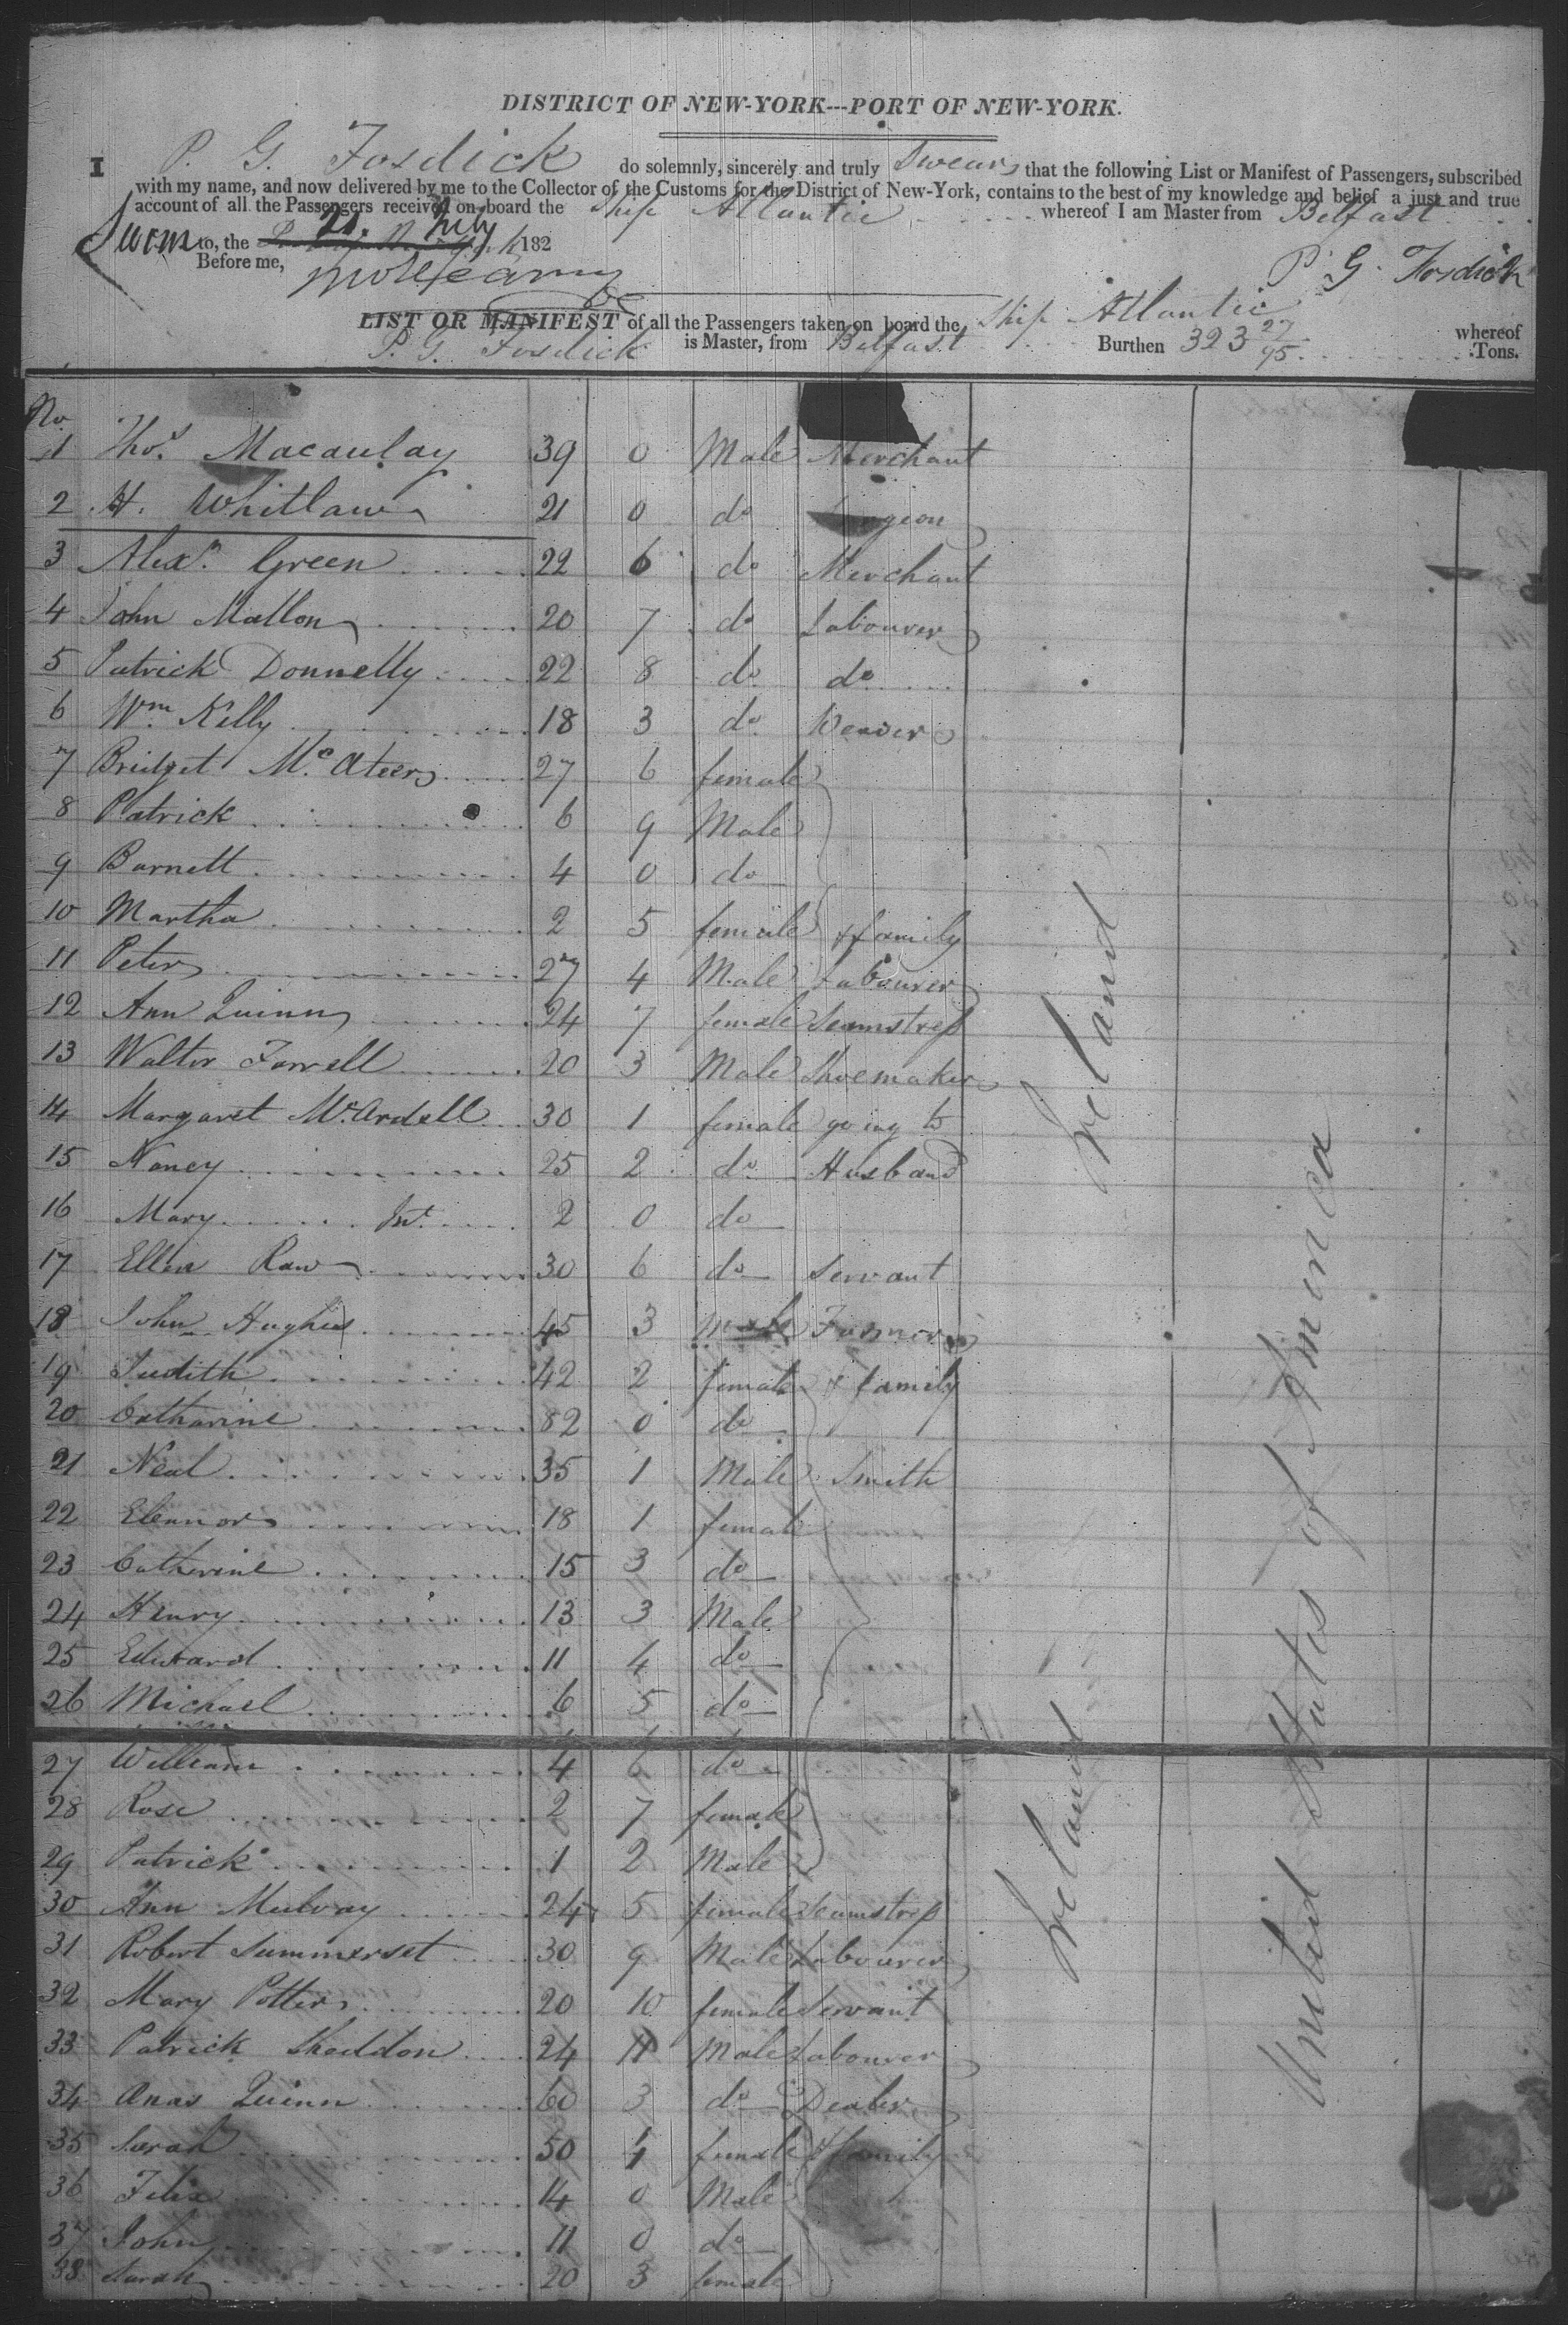 DISTRICT OF NEW-YORK---PORT OF NEW-YORK.
I P. G. Fosdick do solemnly, sincerely and truly Swear that the following List or Manifest of Passengers, subscribed
with my name, and now delivered by me to the Collector of the Customs for the District of New-York, contains to the best of my knowledge and belief a just and true
account of all the Passengers received on board the Ship Atlantic whereof I am Master from Belfast
Sworn to, the 21. July 182
Before me,
P. G. Fosdick
LIST OR MANIFEST of all the Passengers taken on board the Ship Atlantic whereof
P. G. Fosdick is Master, from Belfast Burthen 323 27/95 Tons.
No.
1 Thos. Macaulay 39 0 Male Merchant
2 H. Whitlaw 21 0 do Surgeon
3 Alexr. Green 22 6 do Merchant
4 John Mallon 20 7 do Labourer
5 Patrick Donnelly 22 8 do do
6 Wm Kelly 18 3 do Weaver
7 Bridget Mc.Ateer 27 6 female
8 Patrick 6 9 Male
9 Barnett 4 0 do
10 Martha 2 5 female & family
11 Peter 27 4 Male Labourer
12 Ann Quinn 24 7 female Seamstress
13 Walter Farrell 20 3 Male Shoemaker
14 Margaret Mc.Ardell 30 1 female going to
15 Nancy 25 2 do Husband
16 Mary Int. 2 0 do
17 Ellen Raw 30 6 do Servant
18 John Hughes 45 3 Male Farmer
19 Judith 42 2 female & family
20 Catharine 82 0 do
21 Neal 35 1 Male Smith
22 Eleanor 18 1 female
23 Catherine 15 3 do
24 Henry 13 3 Male
25 Edward 11 4 do
26 Michael 6 5 do
27 William 4 6 do
28 Rose 2 7 female
29 Patrick 1 2 Male
30 Ann Mulvay 24 5 female Seamstress
31 Robert Summerset 30 9 Male Labourer
32 Mary Potter 20 10 female Servant
33 Patrick Sheddon 24 11 Male Labourer
34 Anas Quinn 60 3 do Dealer
35 Sarah 50 4 female & family
36 Felix 14 0 Male
37 John 11 0 do
38 Sarah 20 3 female
Ireland
Ireland
United States of America